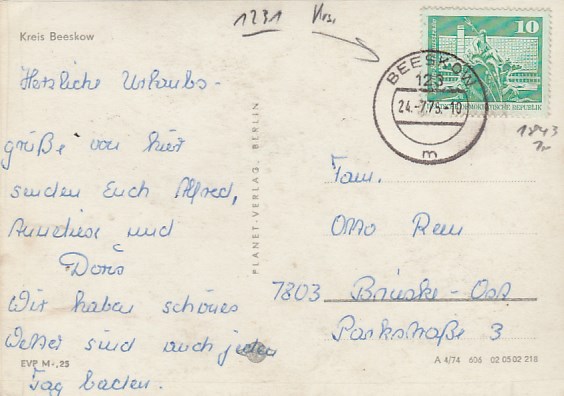 1231
Kreis Beeskow
Herzliche Urlaubs-
grüße von hier
senden Euch Alfred,
Anneliese und
Doris
Wir haben schönes
Wetter sind auch jeden
Tag baden.
EVP M -,25
PLANET-VERLAG, BERLIN
10
DEUTSCHE DEMOKRATISCHE REPUBLIK
BEESKOW
123
24.-7.75.-10
m
1843
Fam.
Otto
7803 Brieske-Ost
Parkstraße 3
A 4/74 606 02 05 02 218